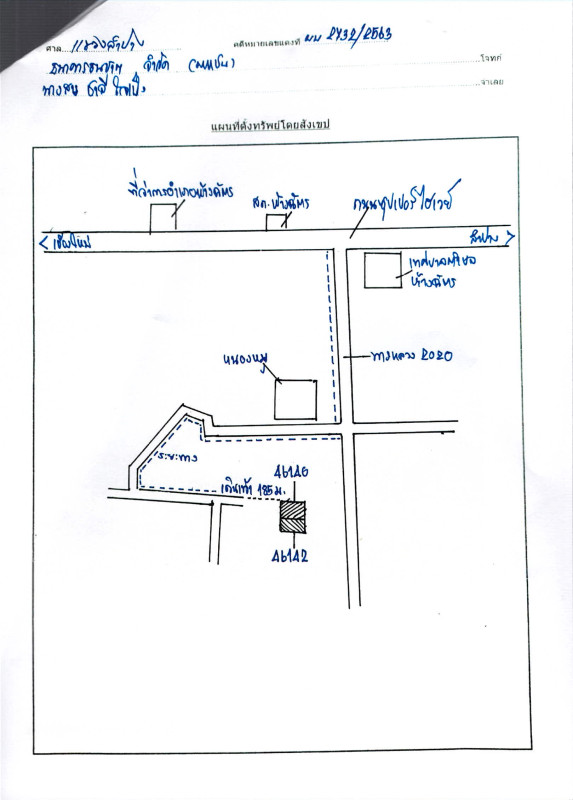 ศาล แขวงลำปาง คดีหมายเลขแดงที่ ผบ 2732/2563
ธนาคารธนชาต จำกัด (มหาชน) โจทก์
จำเลย
แผนที่ตั้งทรัพย์โดยสังเขป
ที่ว่าการอำเภอห้างฉัตร
สภ.ห้างฉัตร
ถนนซุปเปอร์ไฮเวย์
เชียงใหม่
ลำปาง
เทศบาลตำบล
ห้างฉัตร
หนองหมู
ทางหลวง 2020
ระยะทาง
เดินเท้า 185 ม.
46140
46142